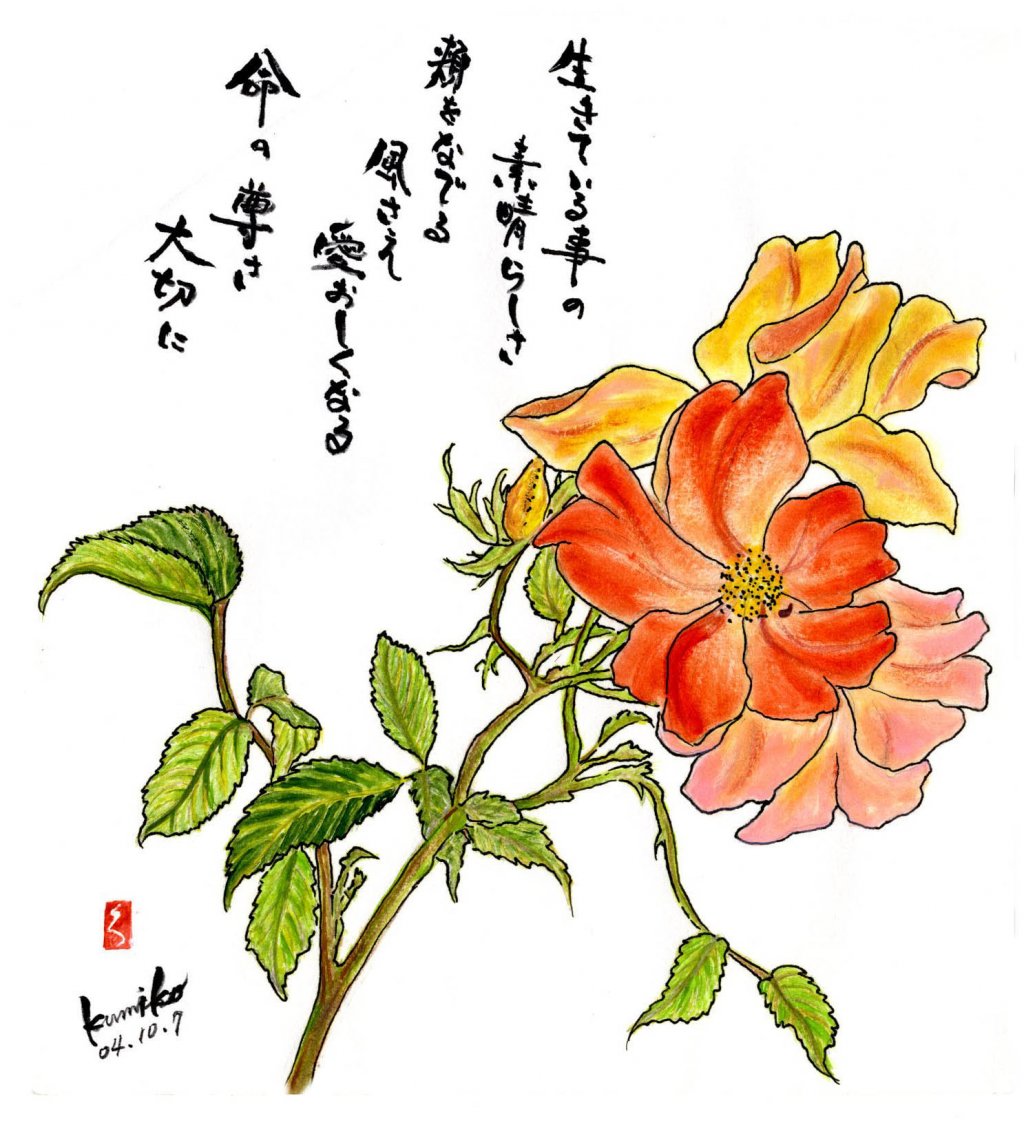 生きている事の
素晴らしさ
頬をなでる
風さえ
愛おしくなる
命の尊さ
大切に
Kumiko
04.10.7